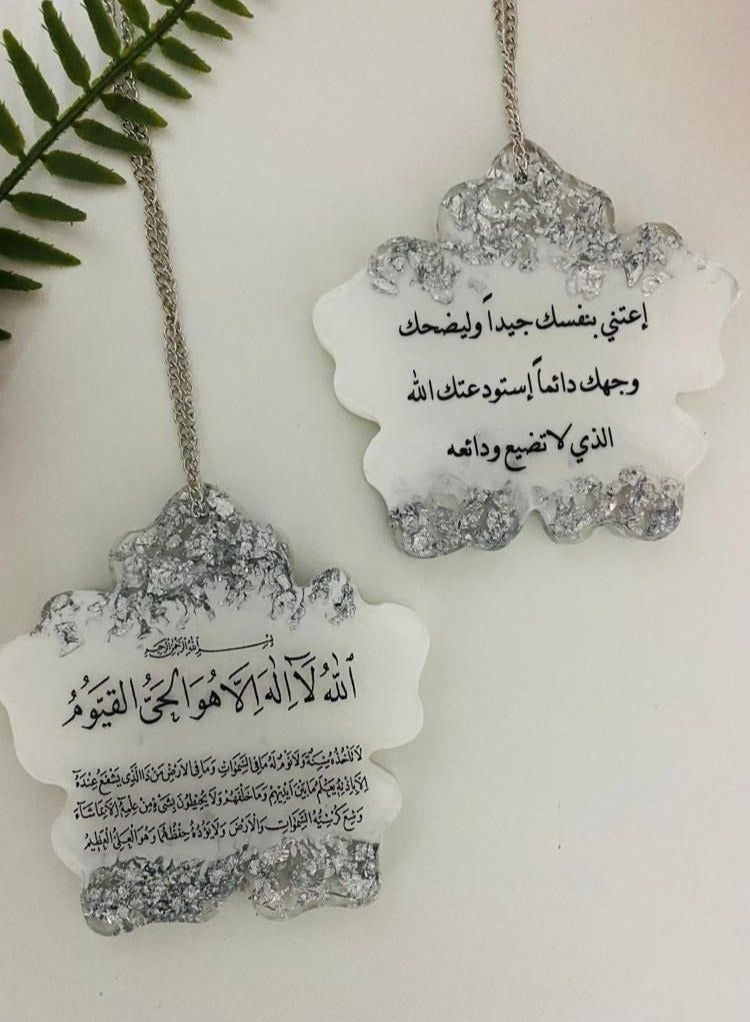 إعتني بنفسك جيداً وليضحك
وجهك دائماً إستودعتك الله
الذي لا تضيع ودائعه
بسم الله الرحمن الرحيم
اَللّٰهُ لَا اِلٰهَ اِلَّا هُوَ الْحَيُّ الْقَيُّومُ
لَا تَأْخُذُهُ سِنَةٌ وَلَا نَوْمٌ لَهُ مَا فِي السَّمٰوَاتِ وَمَا فِي الْاَرْضِ مَنْ ذَا الَّذِي يَشْفَعُ عِنْدَهُٓ
اِلَّا بِاِذْنِهِ يَعْلَمُ مَا بَيْنَ اَيْدِيهِمْ وَمَا خَلْفَهُمْ وَلَا يُحِيطُونَ بِشَيْءٍ مِنْ عِلْمِهِٓ اِلَّا بِمَا شَٓاءَ
وَسِعَ كُرْسِيُّهُ السَّمٰوَاتِ وَالْاَرْضَ وَلَا يَؤُ۫دُهُ حِفْظُهُمَا وَهُوَ الْعَلِيُّ الْعَظِيمُ